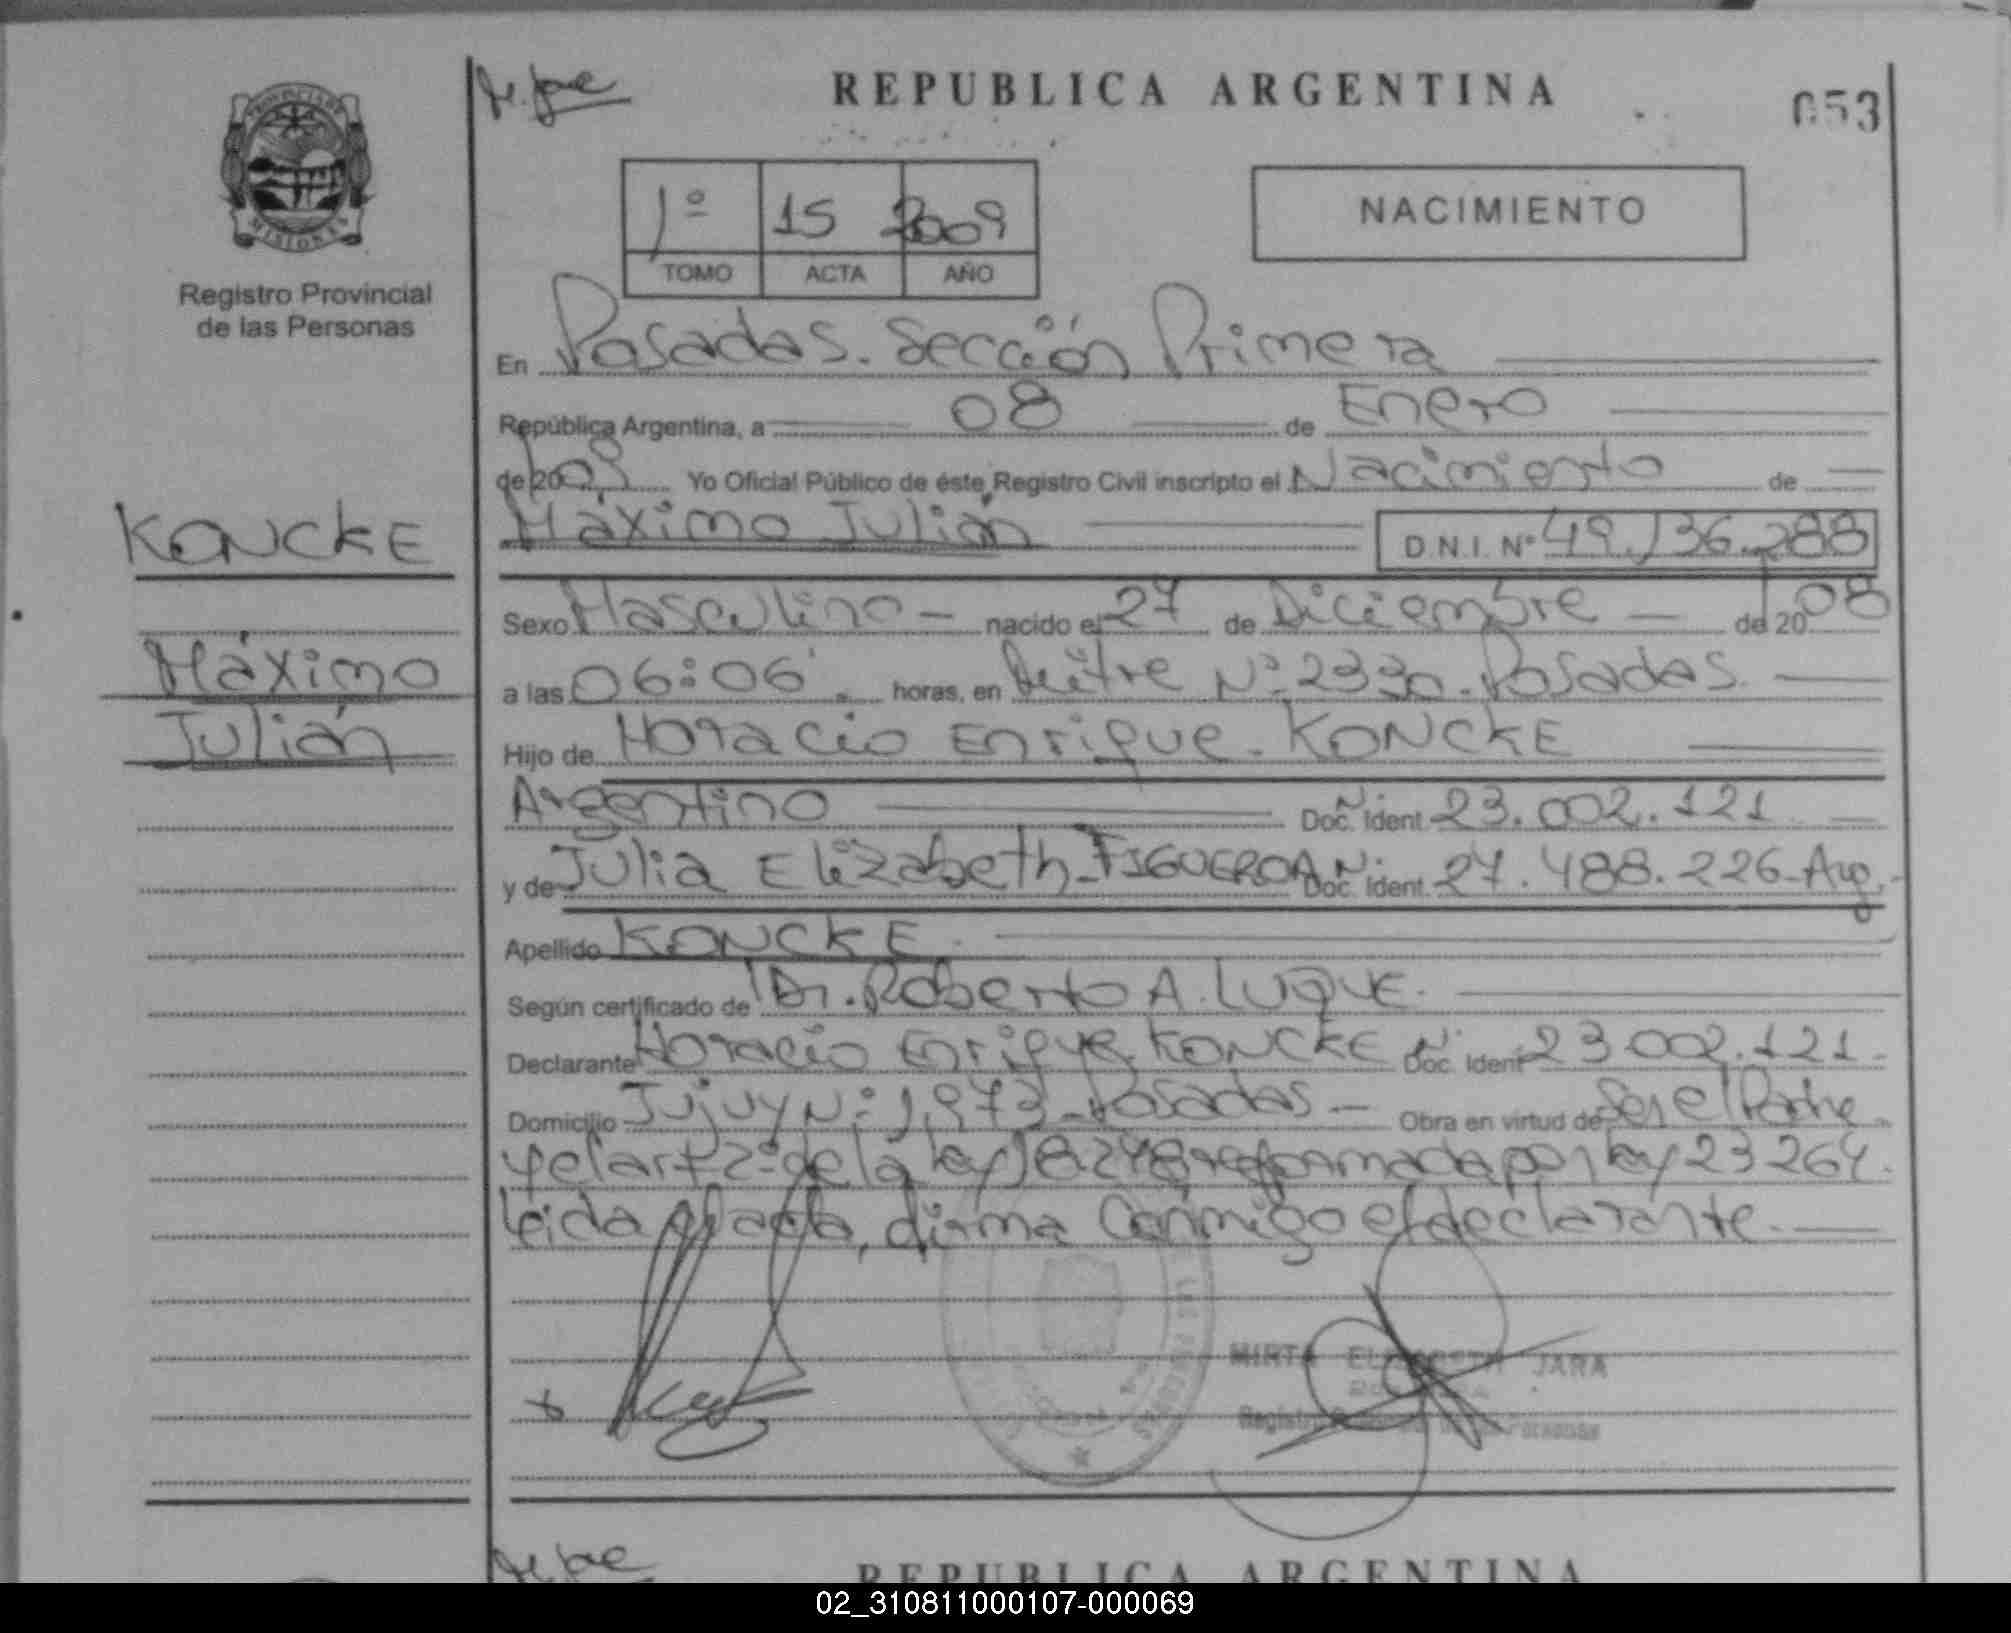 REPUBLICA ARGENTINA
053
PROVINCIA DE
MISIONES
Registro Provincial
de las Personas
1º 15 2009
TOMO ACTA AÑO
NACIMIENTO
En Posadas. Sección Primera
República Argentina, a 08 de Enero
de 2009 Yo Oficial Público de éste Registro Civil inscripto el Nacimiento de
Máximo Julián D.N.I. Nº 49.136.288
KONCKE
Máximo
Julián
Sexo Masculino - nacido el 27 de Diciembre - de 2008
a las 06:06 horas, en Mitre Nº 2330. Posadas.
Hijo de Horacio Enrique. KONCKE
Argentino Nº Doc. Ident. 23.002.121
y de Julia Elizabeth FIGUEROA Nº Doc. Ident. 27.488.226-Arg.
Apellido KONCKE.
Según certificado de Dr. Roberto A. LUQUE.
Declarante Horacio Enrique KONCKE Nº Doc. Ident. 23.002.121
Domicilio Jujuy Nº 1,973 - Posadas - Obra en virtud de Ser el Padre
y el art 2º de la ley 18248 reformada por ley 23264.
leida el acta, firma Conmigo el declarante.
MIRTA ELIZABETH JARA
REPUBLICA ARGENTINA
02_310811000107-000069